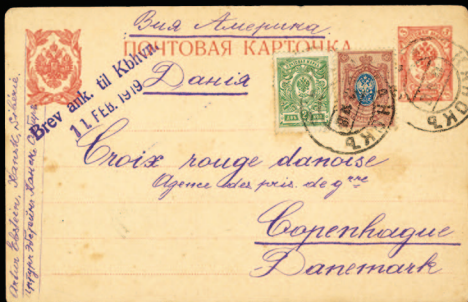 Вия Америка
ПОЧТОВАЯ КАРТОЧКА
Данія
Brev ank. til Kbhvn.
11. FEB. 1919
Croix rouge danoise
Agence des pris. de gʳʳᵉ
Copenhague
Danemark
Artur Ebstein, Kansk, Sibérie,